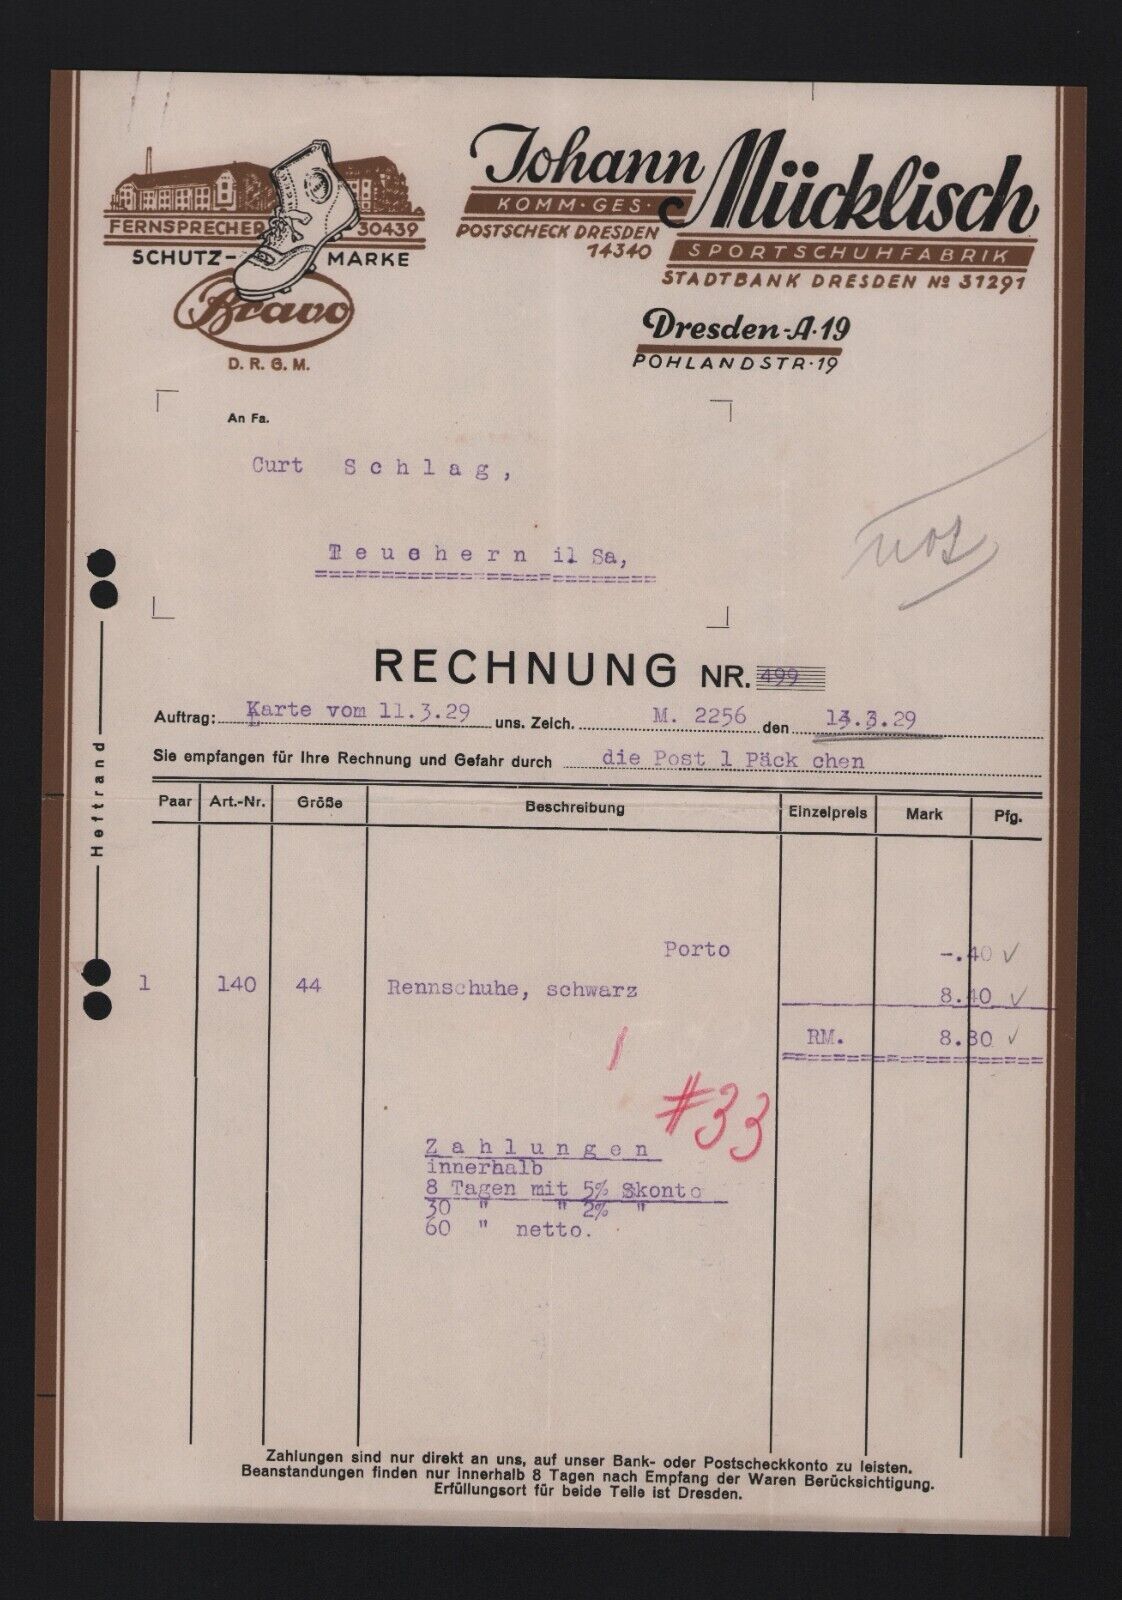 Johann Mücklisch
KOMM·GES·
POSTSCHECK DRESDEN
14340
SPORTSCHUHFABRIK
STADTBANK DRESDEN No 31291
FERNSPRECHER 30439
SCHUTZ- MARKE
Bravo
D. R. G. M.
Dresden-A·19
POHLANDSTR·19
An Fa.
Curt Schlag,
Teuchern i1 Sa,
RECHNUNG NR. 499
Auftrag: Karte vom 11.3.29 uns. Zeich. M. 2256 den 13.3.29
Sie empfangen für Ihre Rechnung und Gefahr durch die Post 1 Päck chen
Heftrand
Paar Art.-Nr. Größe Beschreibung Einzelpreis Mark Pfg.
Porto -.40
1 140 44 Rennschuhe, schwarz 8.40
RM. 8.80
#33
Zahlungen
innerhalb
8 Tagen mit 5% Skonto
30 " " 2% "
60 " netto.
Zahlungen sind nur direkt an uns, auf unser Bank- oder Postscheckkonto zu leisten.
Beanstandungen finden nur innerhalb 8 Tagen nach Empfang der Waren Berücksichtigung.
Erfüllungsort für beide Teile ist Dresden.